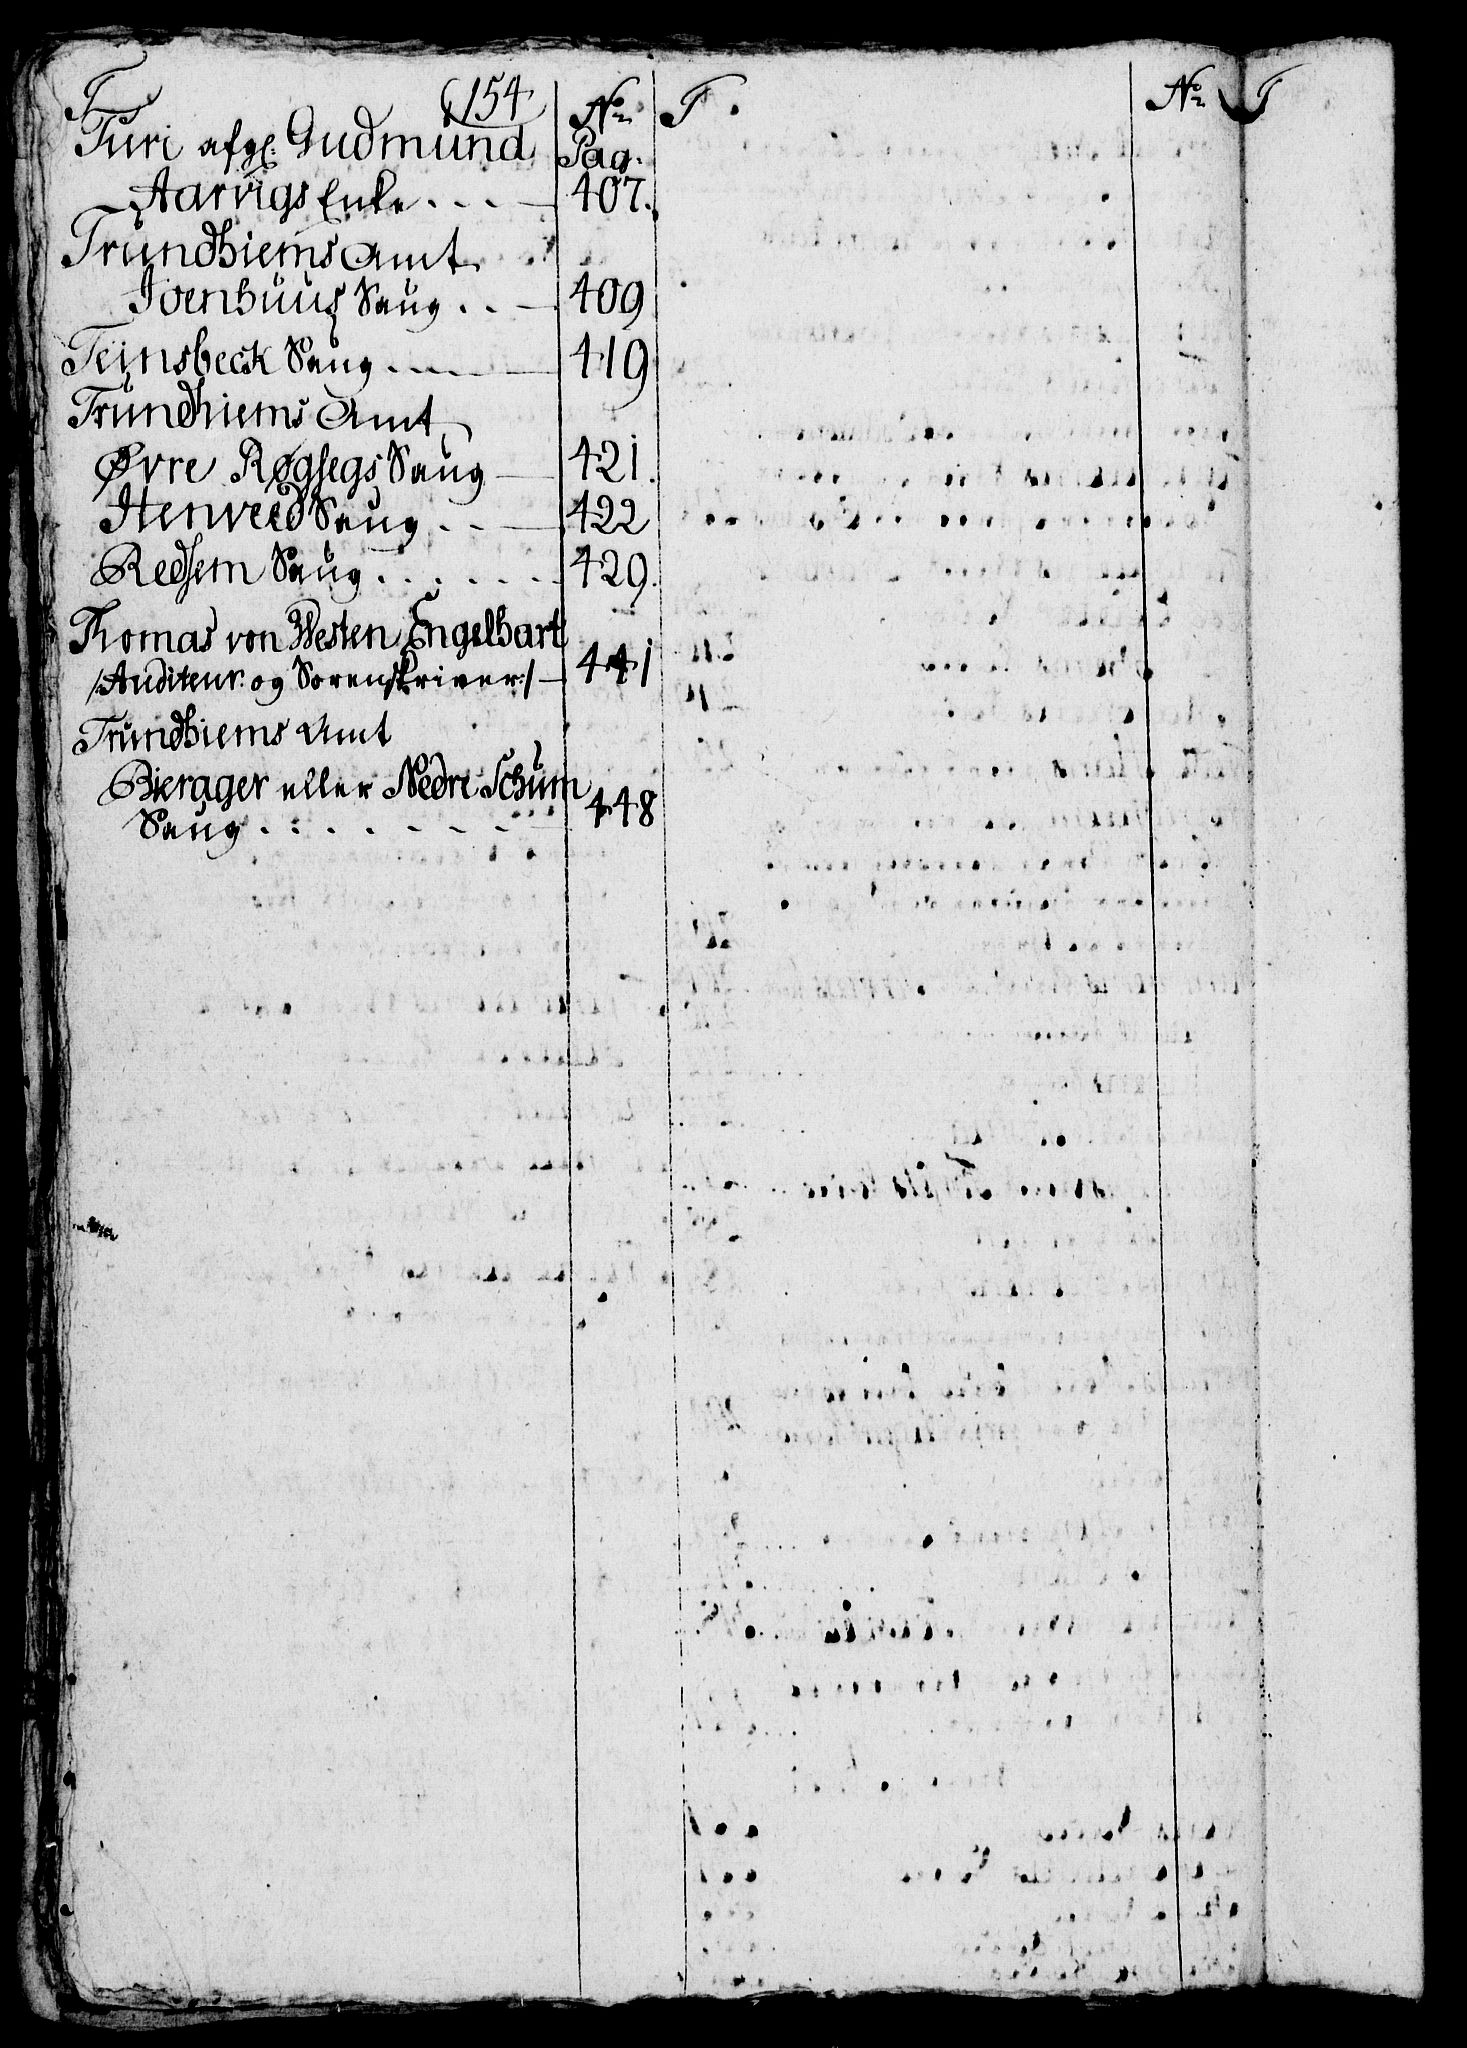 T. (154 No.
Turi afg. Gudmund Pag.
Aarvigs Enke . . . — 407.
Trundhiems Amt
Joenhuus Saug . . — 409
Teinsbeck Saug . . . — 419
Trundhiems Amt
Øvre Røgsegs Saug — 421.
Henveed Saug . . — 422
Redsem Saug . . . . . . . 429.
Thomas von Westen Engelhart
/Auditeur og Sorenskriver:/ — 441
Trundhiems Amt
Bierager eller Nedre Schum
Saug . . . . . . . — 448
T. No.
T